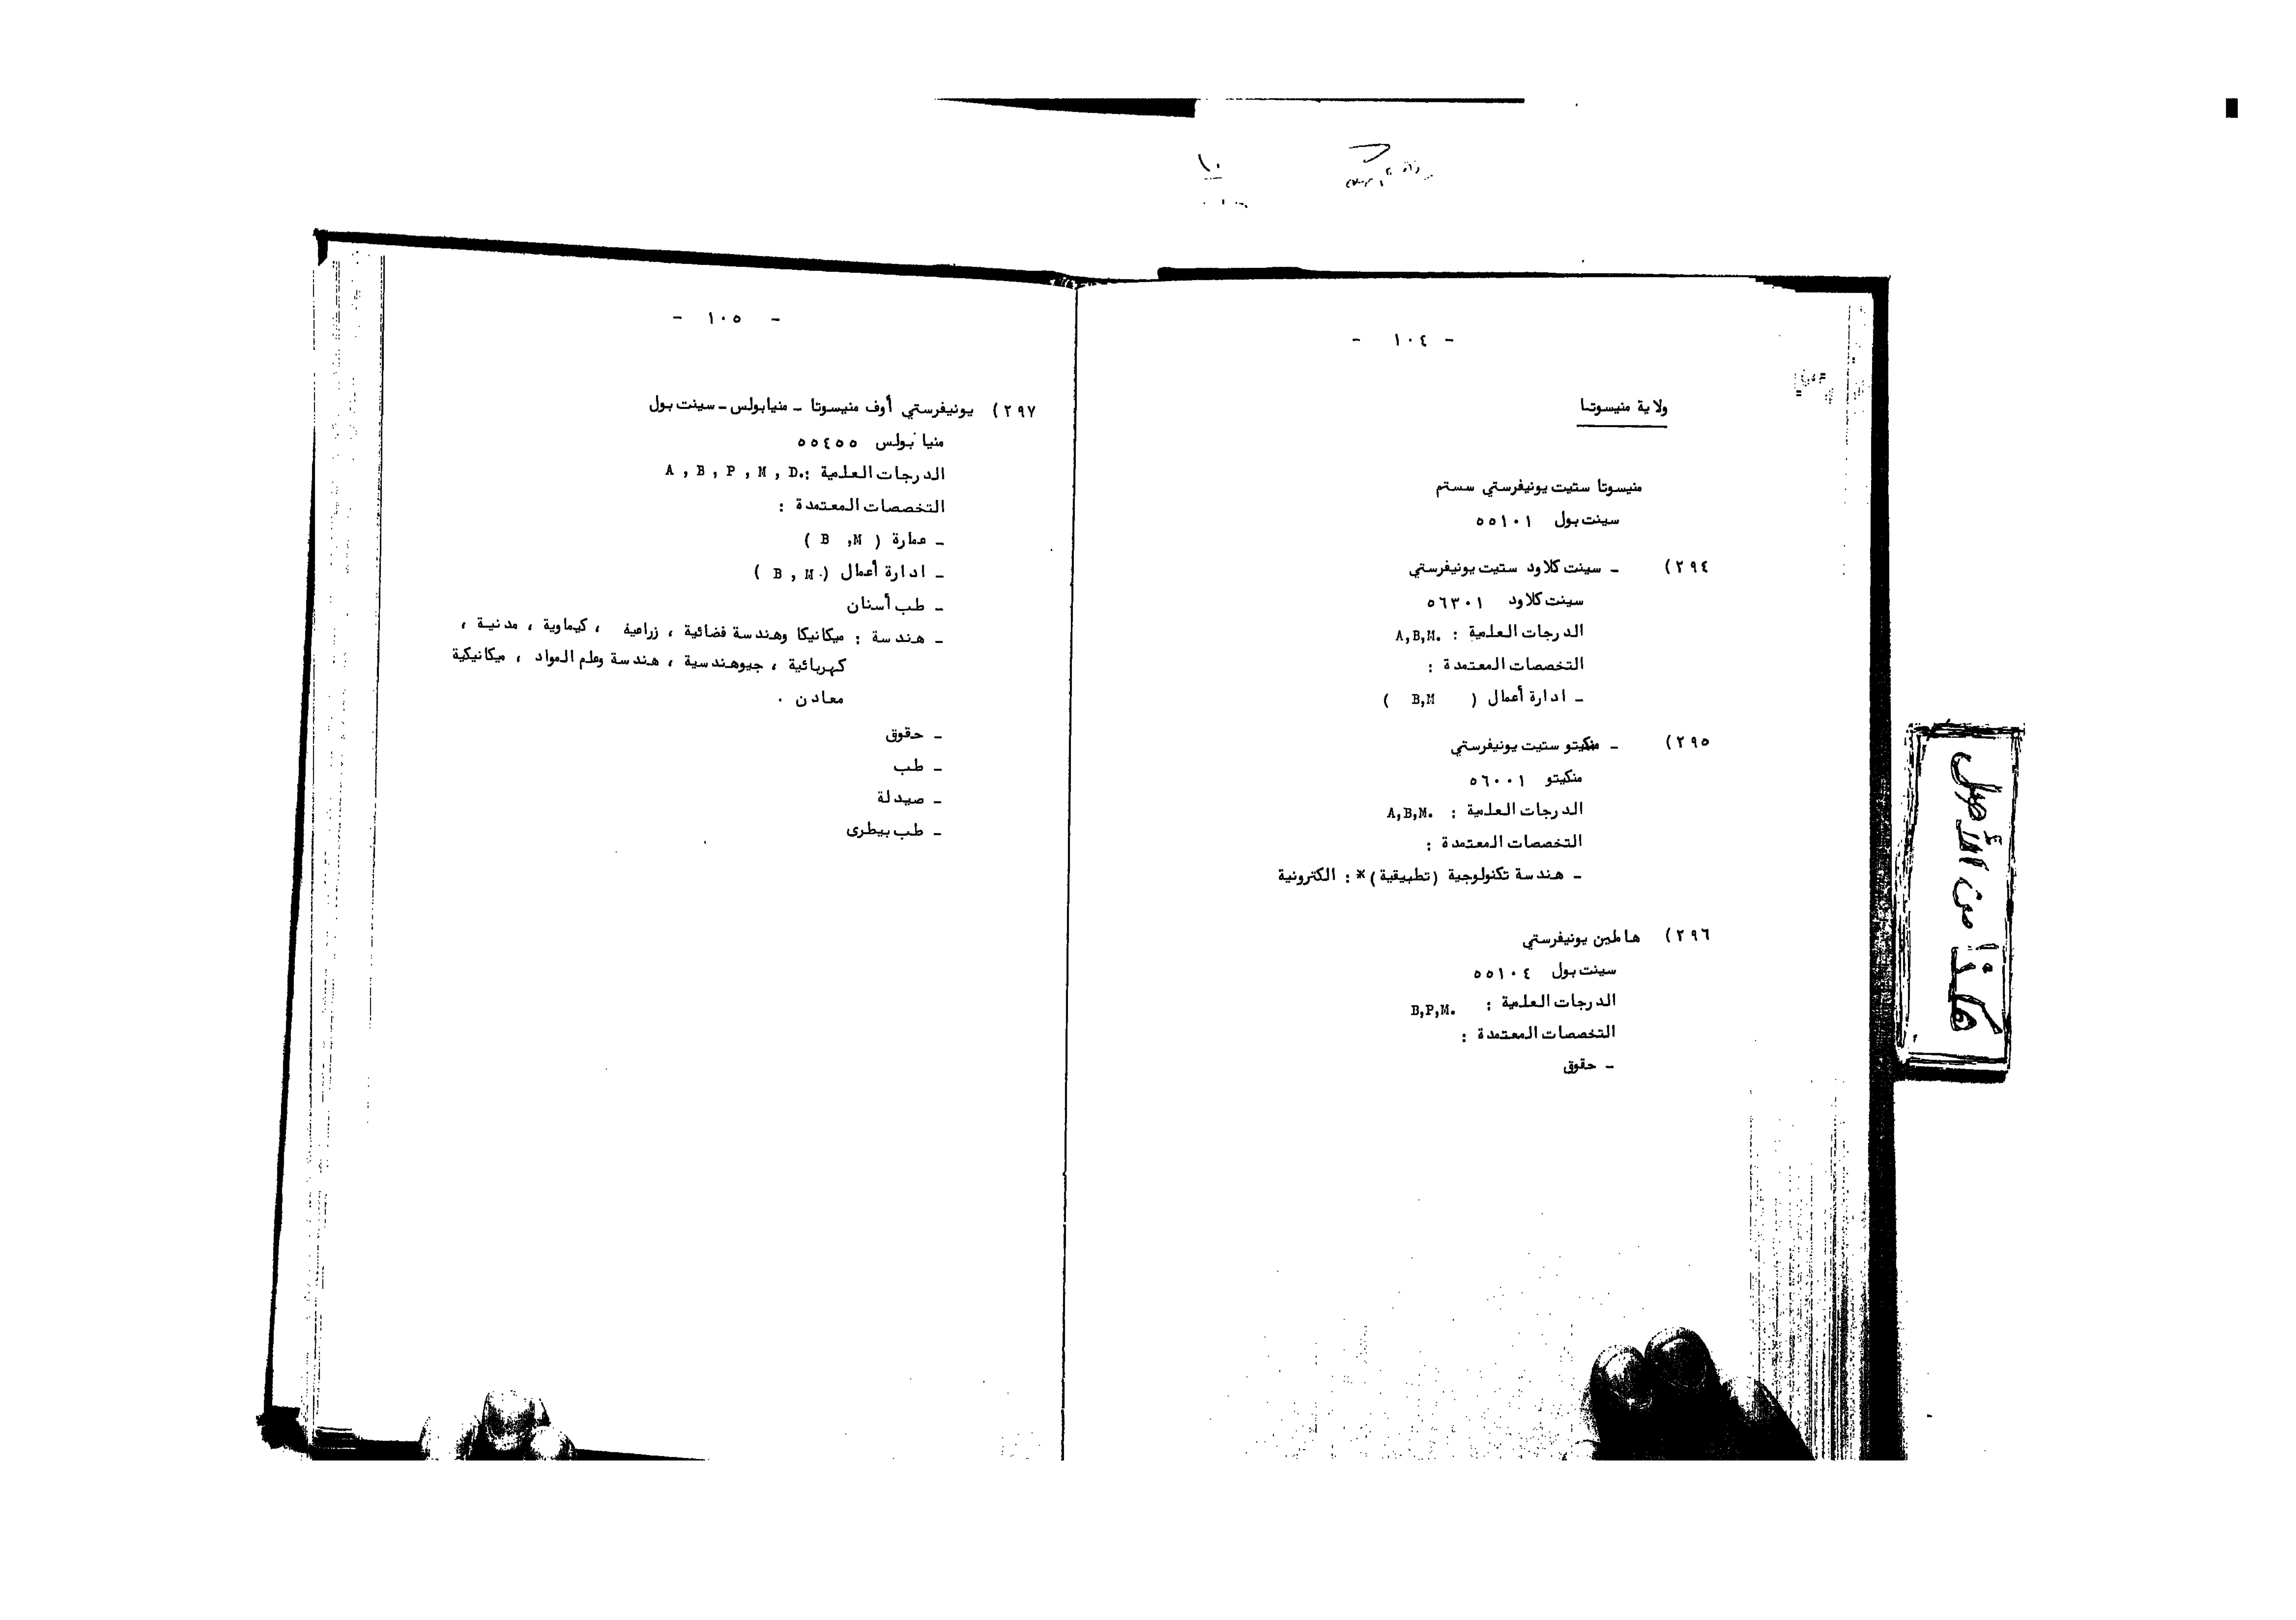 - ١٠٤ -
ولاية منيسوتا
منيسوتا ستيت يونيفرستي سستم
سينت بول ٥٥١٠١
٢٩٤) - سينت كلاود ستيت يونيفرستي
سينت كلاود ٥٦٣٠١
الدرجات العلمية : A,B,M.
التخصصات المعتمدة :
- ادارة أعمال ( B,M )
٢٩٥) - منكيتو ستيت يونيفرستي
منكيتو ٥٦٠٠١
الدرجات العلمية : A,B,M.
التخصصات المعتمدة :
- هندسة تكنولوجية (تطبيقية)* : الكترونية
٢٩٦) هاملين يونيفرستي
سينت بول ٥٥١٠٤
الدرجات العلمية : B,P,M.
التخصصات المعتمدة :
- حقوق
- ١٠٥ -
٢٩٧) يونيفرستي أوف منيسوتا - منيابولس - سينت بول
منيابولس ٥٥٤٥٥
الدرجات العلمية : A , B , P , M , D.
التخصصات المعتمدة :
- عمارة ( B ,M )
- ادارة أعمال ( B , M )
- طب أسنان
- هندسة : ميكانيكا وهندسة فضائية ، زراعية ، كيماوية ، مدنية ،
كهربائية ، جيوهندسية ، هندسة وعلم المواد ، ميكانيكية
معادن .
- حقوق
- طب
- صيدلة
- طب بيطرى
هكذا من الأصل